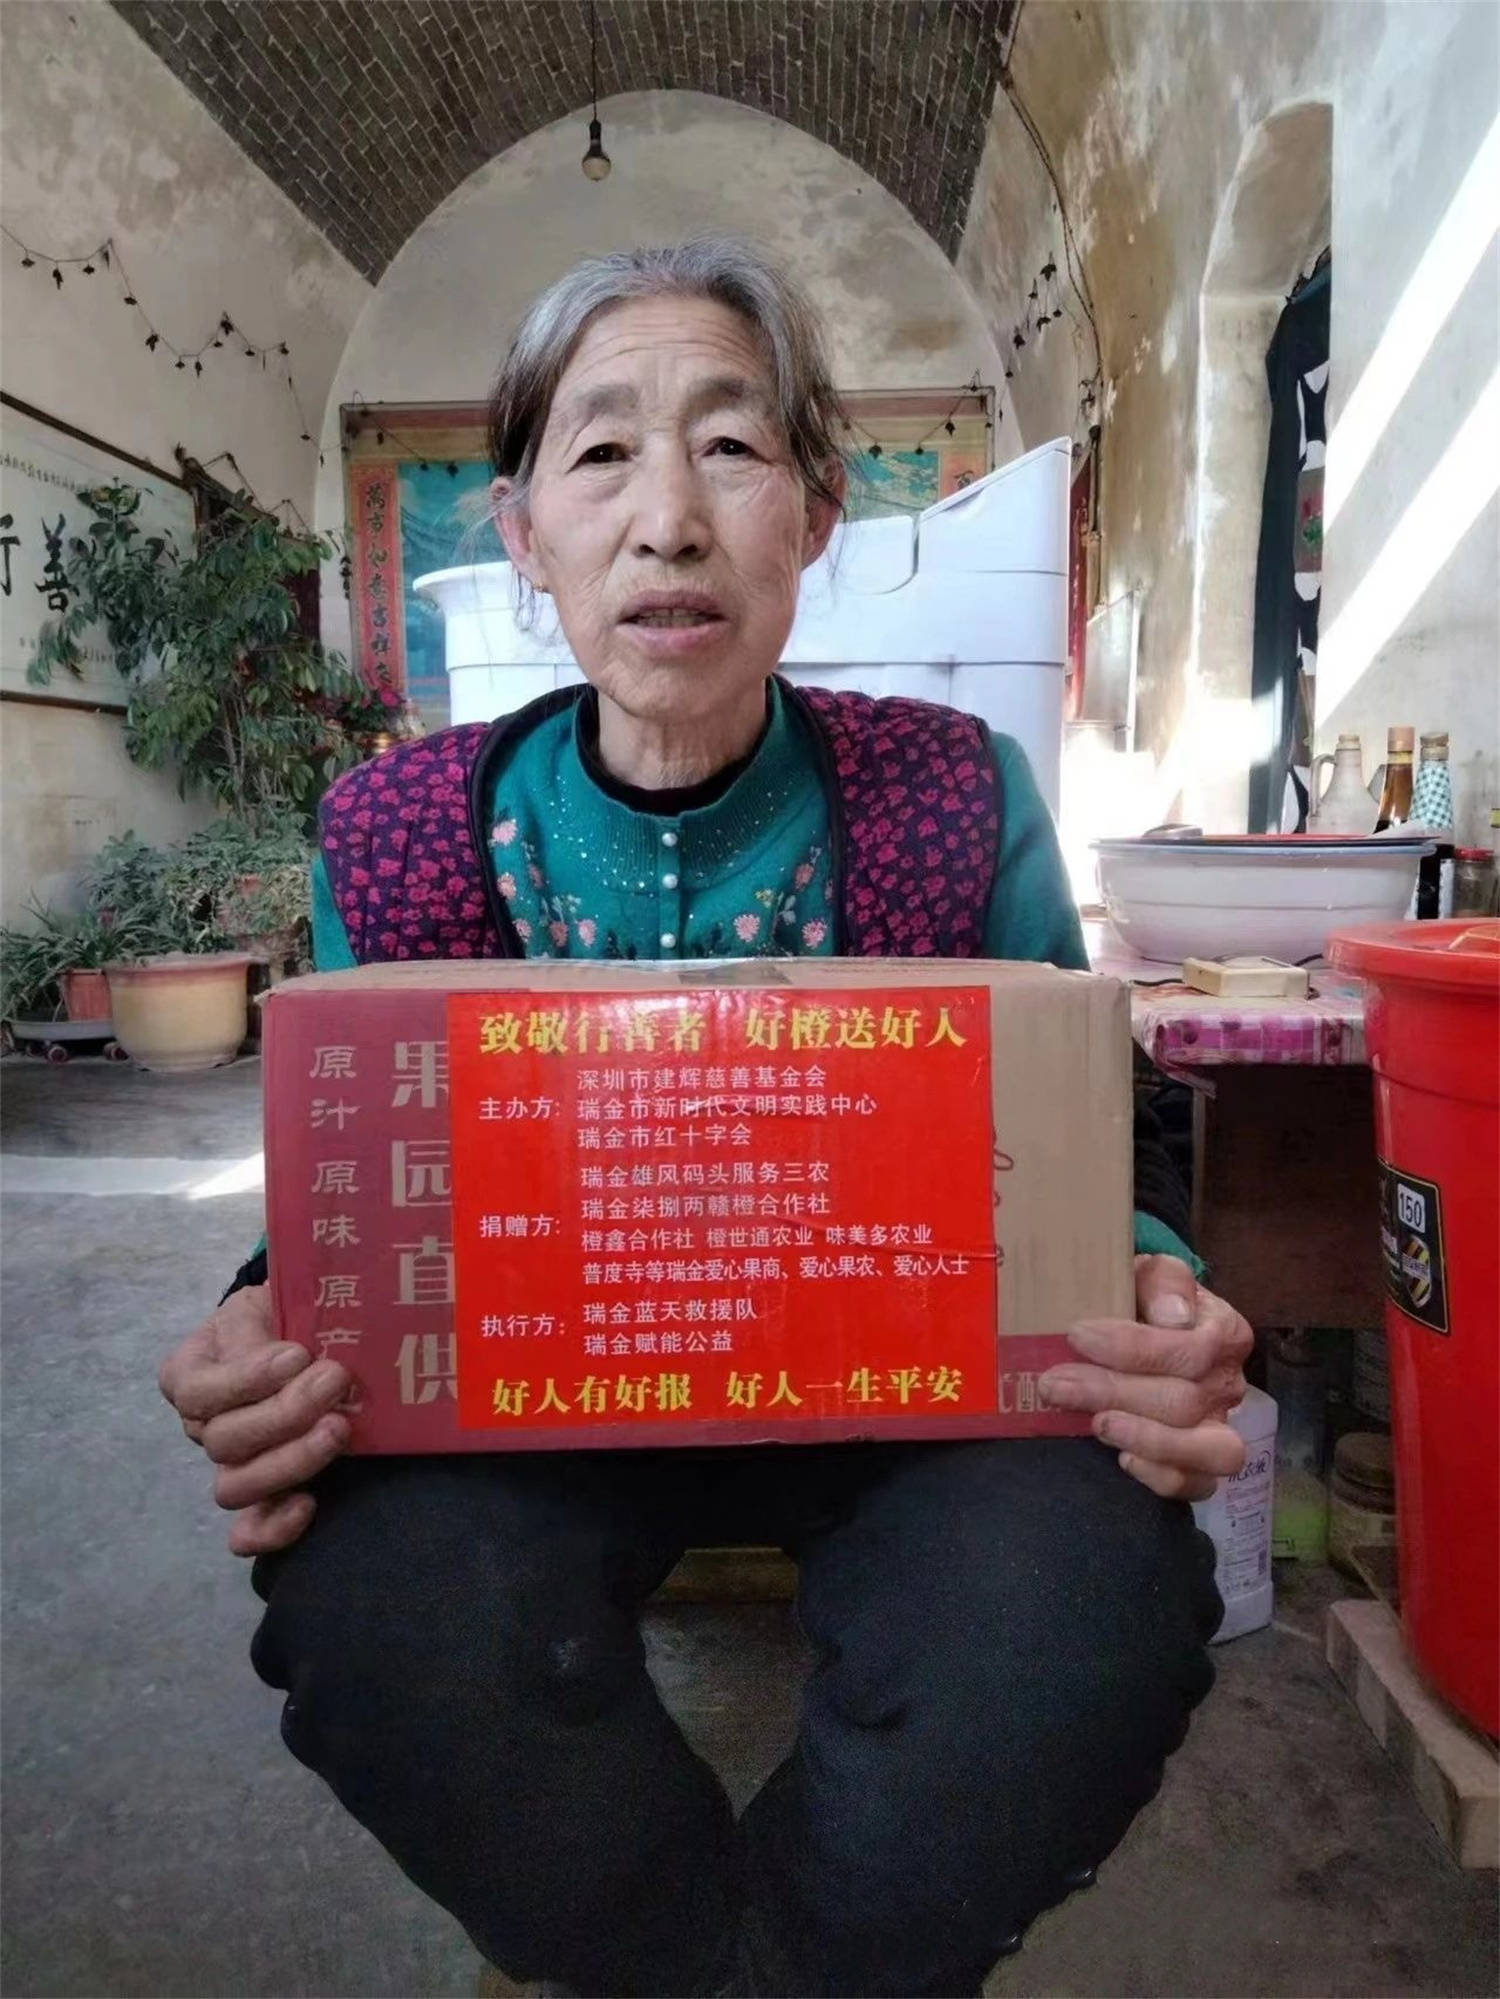 善
萬方如意吉祥來
致敬行善者 好橙送好人
深圳市建辉慈善基金会
主办方: 瑞金市新时代文明实践中心
瑞金市红十字会
瑞金雄风码头服务三农
瑞金柒捌两赣橙合作社
捐赠方:
橙鑫合作社 橙世通农业 味美多农业
普度寺等瑞金爱心果商、爱心果农、爱心人士
执行方: 瑞金蓝天救援队
瑞金赋能公益
好人有好报 好人一生平安
原汁原味原产
果园直供
150
洗衣液